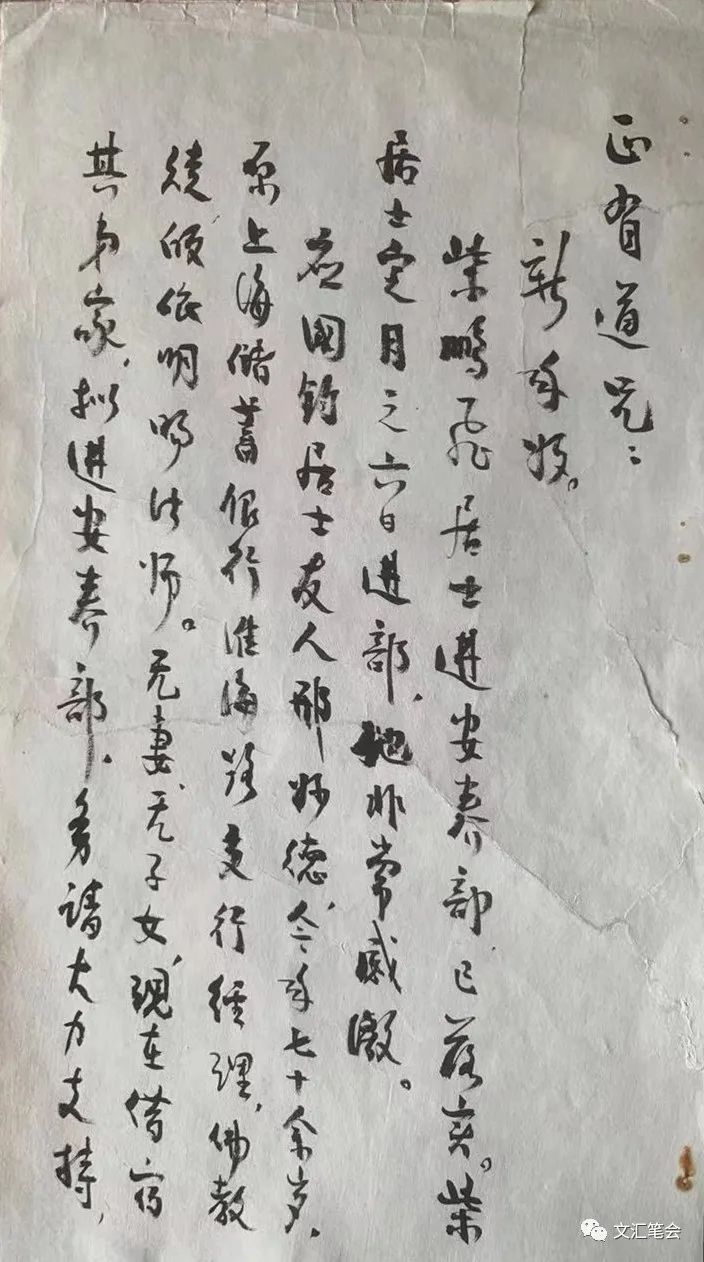 正有道兄：
新年好。
柴鹏飞居士进安养部已落实。柴
居士定月之六日进部，他非常感激。
应国钧居士友人邢妙德，今年七十余岁，
原上海储蓄银行淮海路支行经理，佛教
徒皈依明旸法师。无妻，无子女，现在借宿
其弟家，拟进安养部，多请大力支持，
文汇笔会